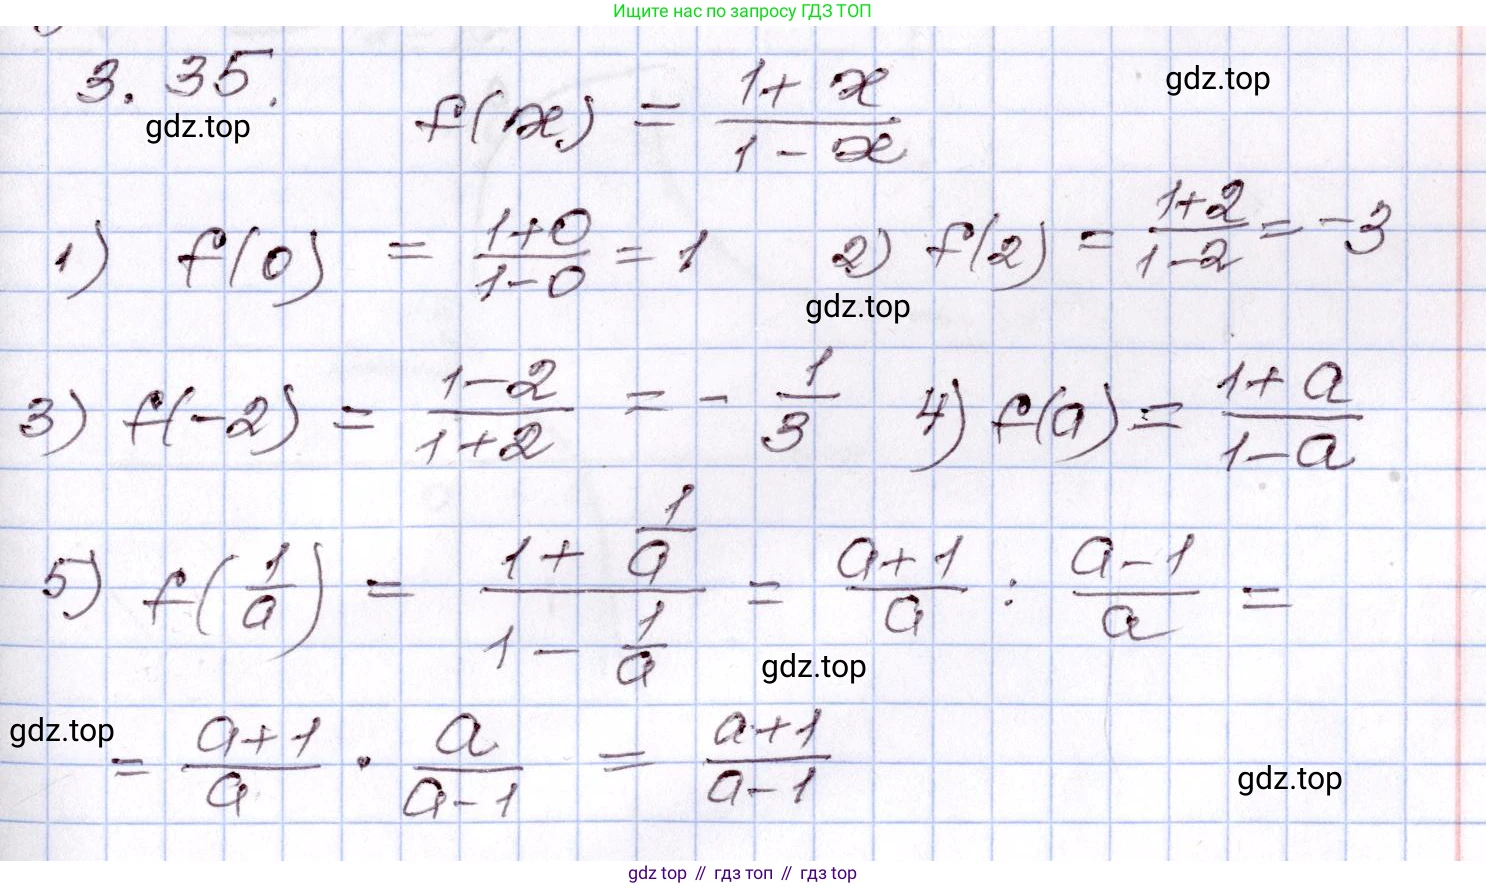 Ищите нас по запросу ГДЗ ТОП
3.35. f(x) = (1+x)/(1-x)
gdz.top
gdz.top
1) f(0) = (1+0)/(1-0) = 1 2) f(2) = (1+2)/(1-2) = -3
gdz.top
3) f(-2) = (1-2)/(1+2) = -1/3 4) f(a) = (1+a)/(1-a)
5) f(1/a) = (1+1/a)/(1-1/a) = (a+1)/a : (a-1)/a =
gdz.top
gdz.top
= (a+1)/a · a/(a-1) = (a+1)/(a-1)
gdz.top
gdz top // гдз топ // гдз top